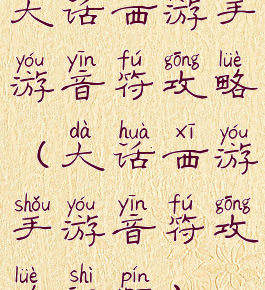 大话西游手
yóu yīn fú gōng lüè
游音符攻略
dà huà xī yóu
（大话西游
shǒu yóu yīn fú gōng
手游音符攻
lüè shì pín